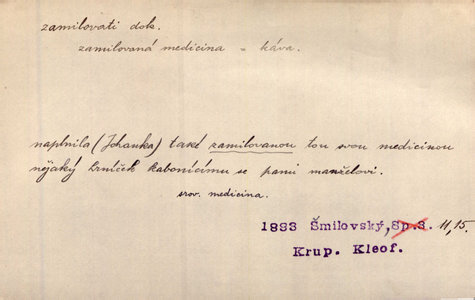 zamilovati dok.
zamilovaná medicina = káva.
naplnila (Johanka) také zamilovanou tou svou medicinou
nějaký hrníček kabonícímu se panu manželovi.
srov. medicina.
1883 Šmilovský, Sp. 3. 11, 15.
Krup. Kleof.